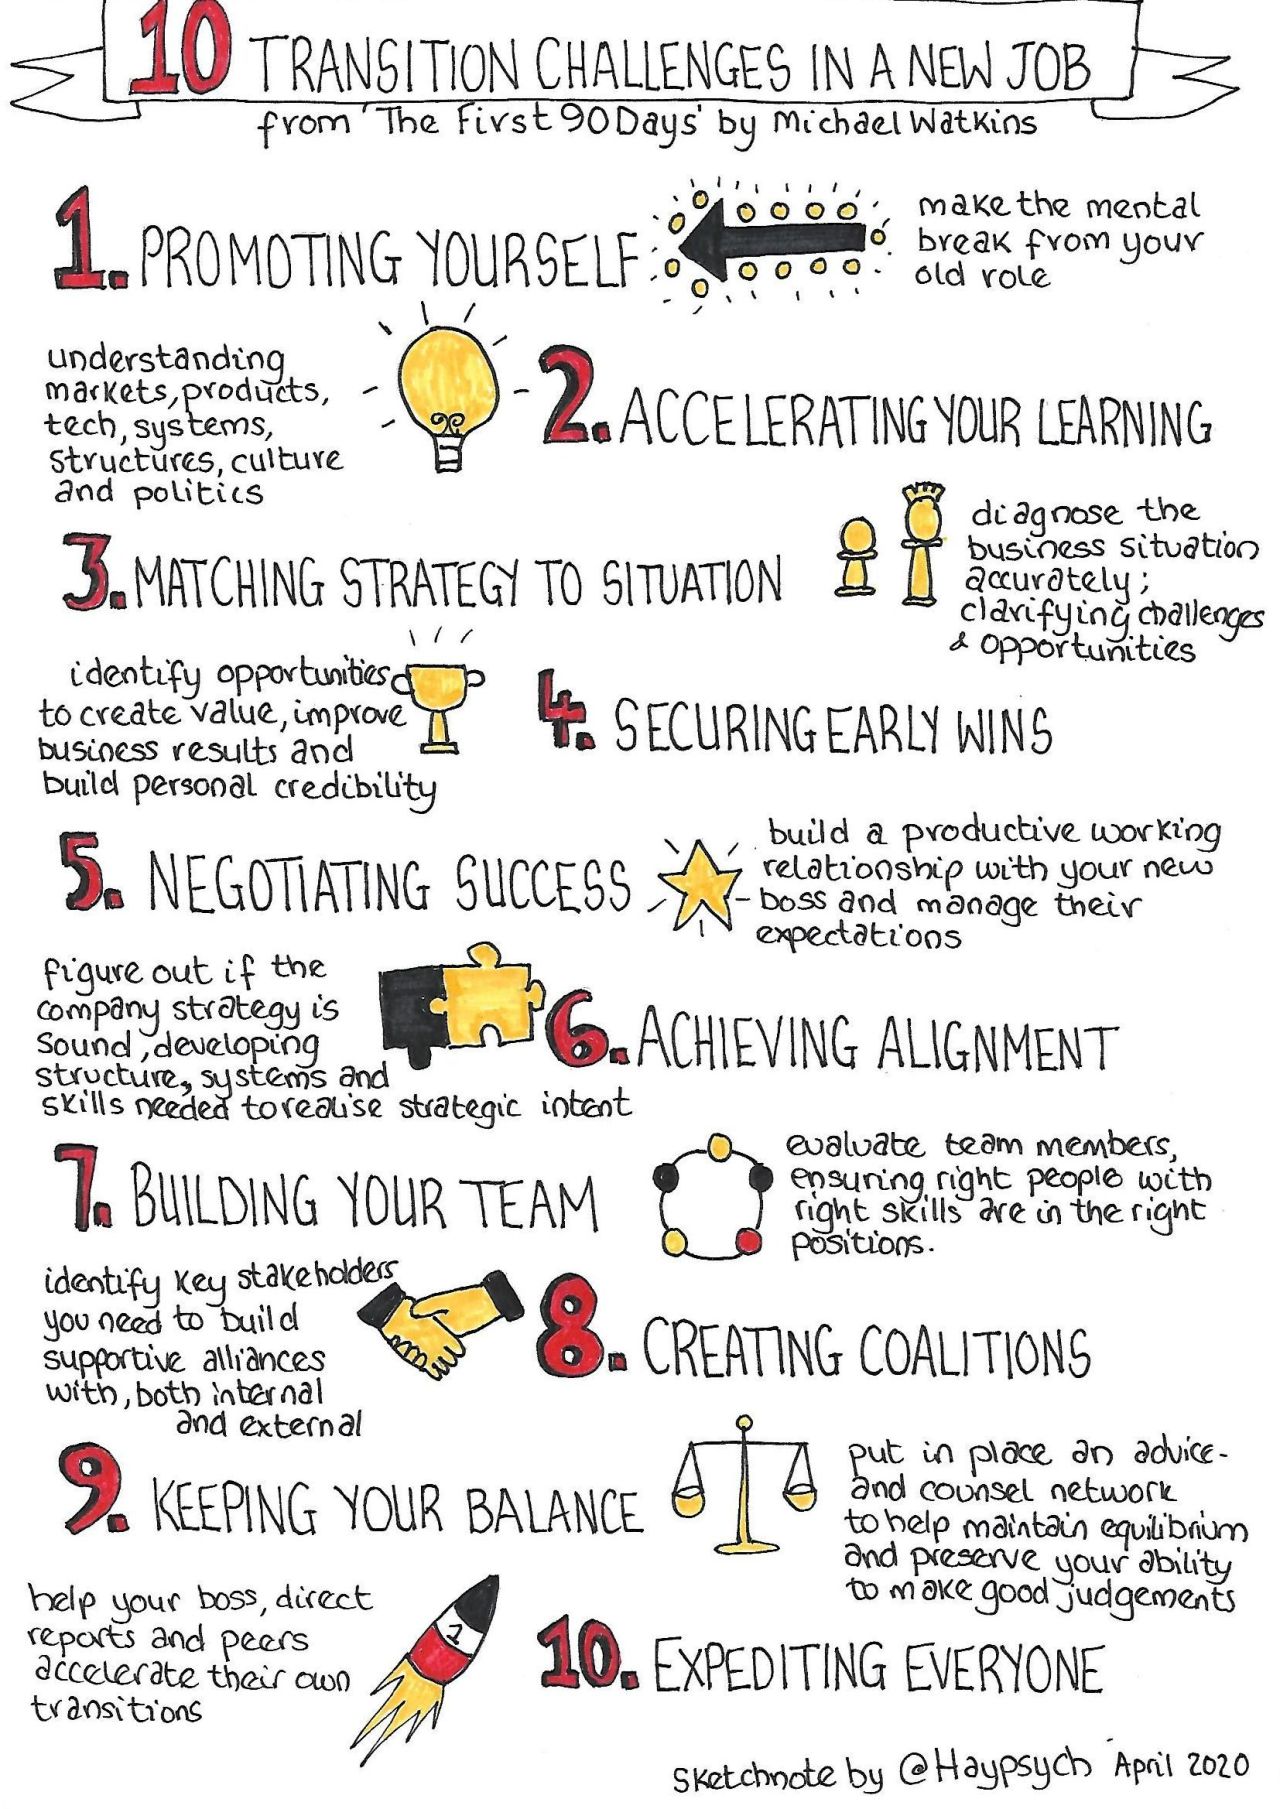 10 TRANSITION CHALLENGES IN A NEW JOB
from 'The First 90 Days' by Michael Watkins
1. PROMOTING YOURSELF
make the mental
break from your
old role
understanding
markets, products,
tech, systems,
structures, culture
and politics
2. ACCELERATING YOUR LEARNING
3. MATCHING STRATEGY TO SITUATION
diagnose the
business situation
accurately;
clarifying challenges
& opportunities
identify opportunities
to create value, improve
business results and
build personal credibility
4. SECURING EARLY WINS
5. NEGOTIATING SUCCESS
build a productive working
relationship with your new
boss and manage their
expectations
figure out if the
company strategy is
sound, developing
structure, systems and
skills needed to realise strategic intent
6. ACHIEVING ALIGNMENT
7. BUILDING YOUR TEAM
evaluate team members,
ensuring right people with
right skills are in the right
positions.
identify key stakeholders
you need to build
supportive alliances
with, both internal
and external
8. CREATING COALITIONS
9. KEEPING YOUR BALANCE
put in place an advice-
and counsel network
to help maintain equilibrium
and preserve your ability
to make good judgements
help your boss, direct
reports and peers
accelerate their own
transitions
1
10. EXPEDITING EVERYONE
sketchnote by @Haypsych April 2020